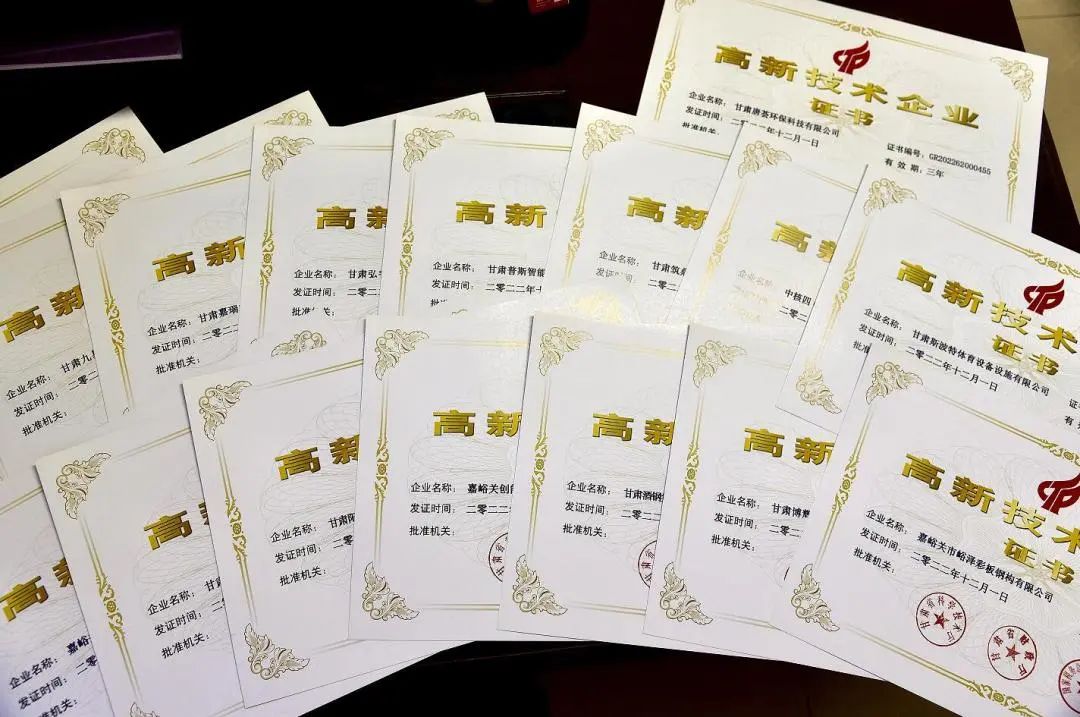 高新技术企业
证书
企业名称: 甘肃唐荟环保科技有限公司
发证时间: 二〇二二年十二月一日
批准机关:
证书编号: GR202262000455
有效期: 三年
高新
企业名称: 甘肃九
发证时间: 二〇
批准机关:
高新
企业名称: 甘肃嘉瑞
发证时间: 二〇二
批准机关:
高新
企业名称: 甘肃弘
发证时间: 二〇二二
批准机关:
高新
企业名称: 甘肃普斯智能
发证时间: 二〇二二年十
高新
企业名称: 甘肃筑
发证时间: 二〇二
高新
企业名称: 中核四
发证时间:
高新技术
证书
企业名称: 甘肃斯波特体育设备设施有限公司
发证时间: 二〇二二年十二月一日
批准机关:
证
有
高新
企业名称: 嘉峪
发证时间: 二〇
批准机关:
高新
企业名称: 甘肃
发证时间: 二〇
批准机关:
高新
企业名称: 甘肃阳
发证时间: 二〇二
批准机关:
高新
企业名称: 嘉峪关创
发证时间: 二〇二二
批准机关:
高新
企业名称: 甘肃酒钢
发证时间: 二〇二二
批准机关:
高新
企业名称: 甘肃博
发证时间: 二〇二
批准机关:
高新技术
证书
企业名称: 嘉峪关市峪泽彩板钢构有限公司
发证时间: 二〇二二年十二月一日
批准机关:
甘肃省科学技术厅
甘肃省财政厅